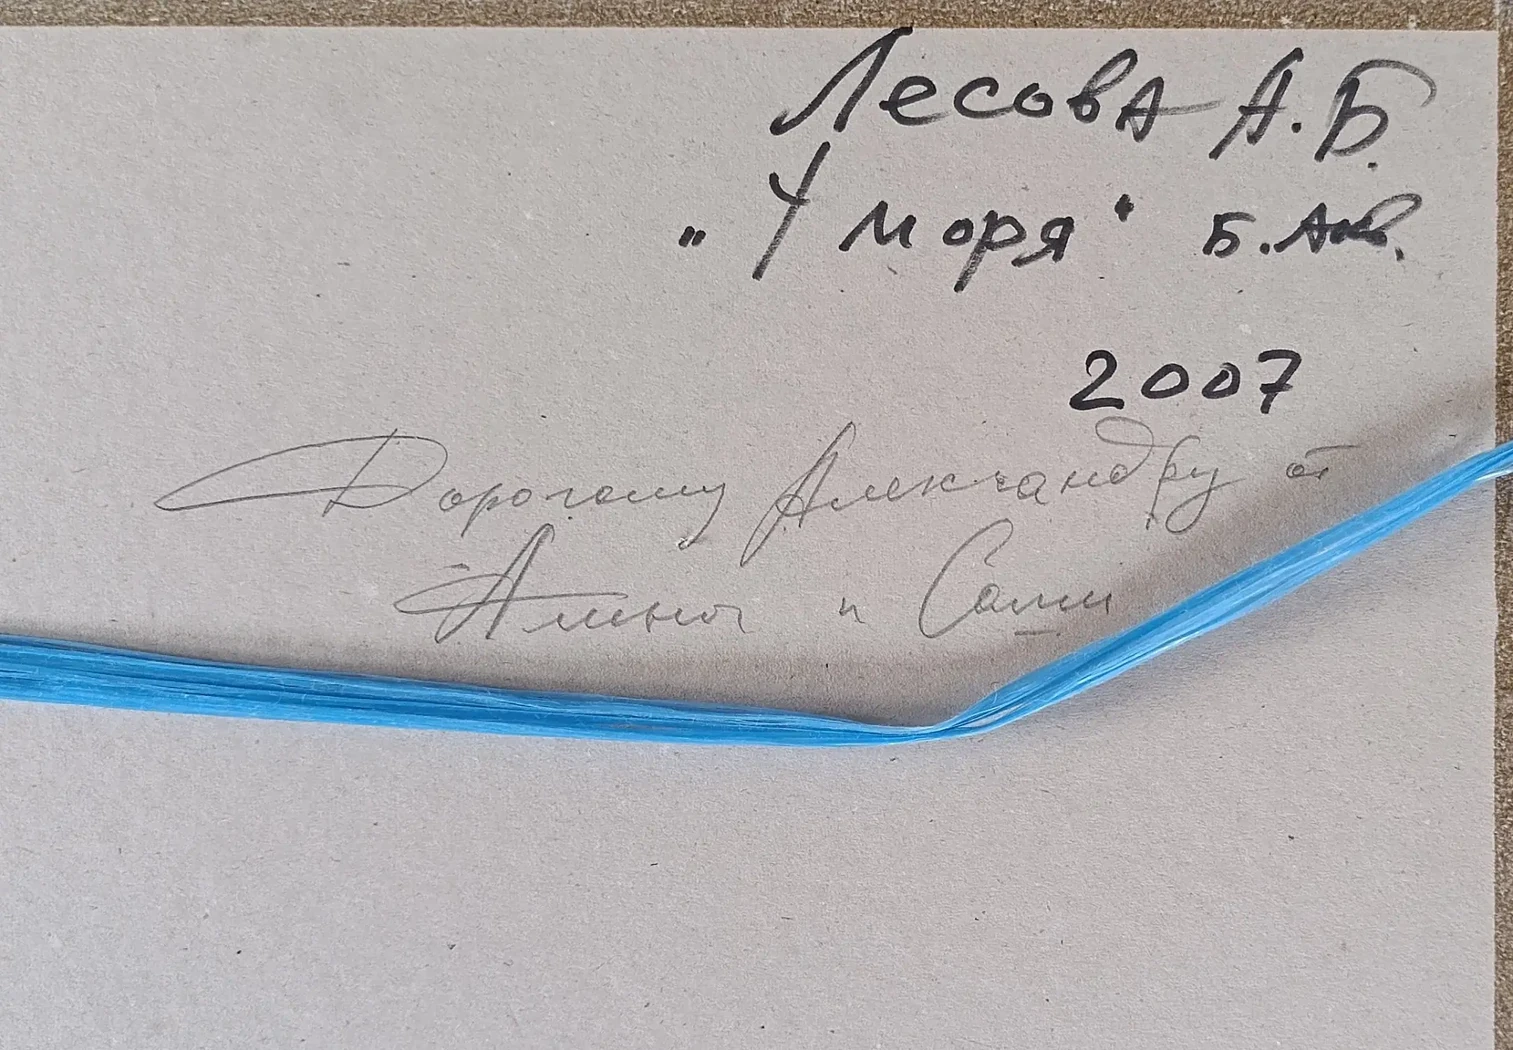 Лесова А.Б.
„У моря" Б. Акв.
2007
Дорогому Александру от
Алены и Саши